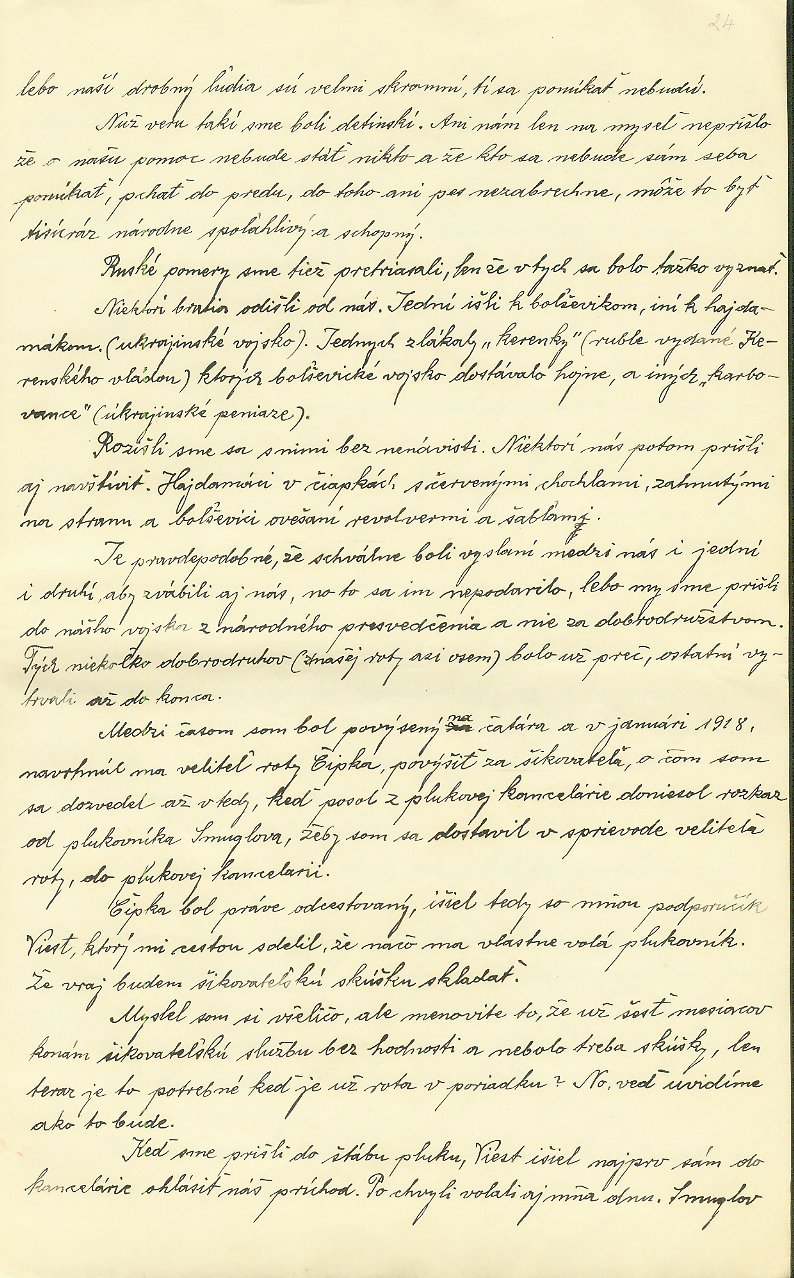 24
lebo naší drobný ľudia sú velmi skromní, tí sa ponúkať nebudú.
Nuž veru takí sme boli detinskí. Ani nám len na myseľ neprišlo
že o našu pomoc nebude stáť nikto a že kto sa nebude sám seba
ponúkať, pchať do predu, do toho ani pes nezabrechne, môže to byť
tisícráz národne spoľahlivý a schopný.
Ruské pomery sme tiež pretriasali, lenže v tých sa bolo ťažko vyznať.
Niektorí bratia odišli od nás. Jední išli k bolševikom, iní k hajda-
mákom. (ukrajinské vojsko). Jedných zlákaly „kerenky" (ruble vydané Ke-
renského vládou) ktorých bolševické vojsko dostávalo hojne, a iných „karbo-
vance" (úkrajinské peniaze).
Rozišli sme sa s nimi bez nenávisti. Niektorí nás potom prišli
aj navštíviť. Hajdamáci v čiapkách s červenými chochlami, zahnutými
na stranu a bolševici ovešaní revolvermi a šabľami.
Je pravdepodobné, že schválne boli vyslaní medzi nás i jední
i druhí, aby zvábili aj nás, no to sa im nepodarilo, lebo my sme prišli
do nášho vojska z národného presvedčenia a nie za dobrodružstvom.
Tých niekoľko dobrodruhov (z našej roty asi osem) bolo už preč, ostatní vy-
trvali až do konca.
Medzi časom som bol povýsený na čatára a v januári 1918,
navrhnúl ma veliteľ roty Čipka, povýšiť za šikovateľa, o čom som
sa dozvedel až vtedy, keď posol z plukovej kancelárie doniesol rozkaz
od plukovníka Smuglova, žeby som sa dostavil v sprievode veliteľa
roty, do plukovej kancelarii.
Čipka bol práve odcestovaný, išiel tedy so mňou podporučík
Viest, ktorý mi cestou sdelil, že načo ma vlastne volá plukovník.
Že vraj budem šikovateľskú skúšku skladať.
Myslel som si všeličo, ale menovite to, že už šesť mesiacov
konám šikovateľskú službu bez hodnosti a nebolo treba skúšky, len
teraz je to potrebné keď je už rota v poriadku? No, veď uvidíme
ako to bude.
Keď sme prišli do štábu pluku, Viest išiel najprv sám do
kancelárie ohlásiť náš príchod. Po chvyli volali aj mňa dnu. Smuglov